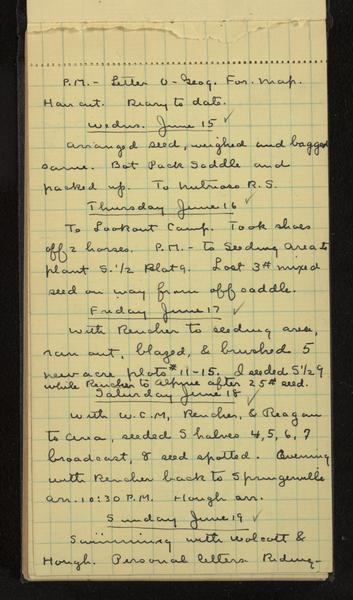 P.M. - Letter O - Geog. For. map.
Hair cut. Diary to date.
Wednes. June 15 ✓
Arranged seed, weighed and bagged
same. Bot Pack Saddle and
packed up. To Nutrioso R.S.
Thursday June 16 ✓
To Lookout Camp. Took shoes
off 2 horses. P.M. - to Seeding area to
plant S. 1/2 Plat 9. Lost 3# mixed
seed on way from off saddle.
Friday June 17 ✓
With Rencher to seeding area,
ran out, blazed, & brushed 5
new acre plots # 11-15. I seeded S 1/2 9
while Rencher to Alpine after 25# seed.
Saturday June 18 ✓
With W.C.M, Rencher, & Reagan
to area, seeded S halves 4, 5, 6, 7
broadcast, 8 seed spotted. Evening
with Rencher back to Springerville
arr. 10:30 P.M. Hough arr.
Sunday June 19 ✓
Swimming with Wolcott &
Hough. Personal letters. Riding-